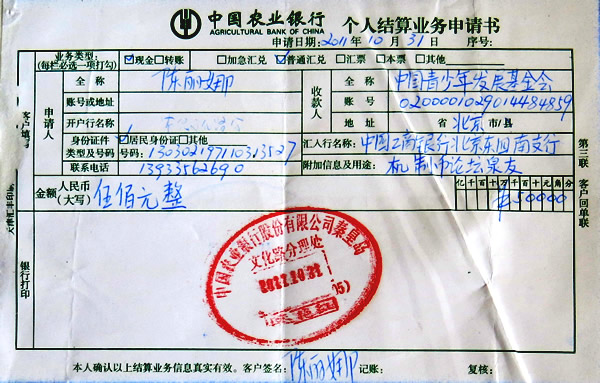 中国农业银行 个人结算业务申请书
AGRICULTURAL BANK OF CHINA
申请日期:2011年10月31日 序号:
业务类型: ☑现金□转账 □加急汇兑 ☑普通汇兑 □汇票 □本票 □其他
(每栏必选一项打勾)
客户填写
申请人
全称 陈丽娜
账号或地址
开户行名称
身份证件 ☑居民身份证□其他
类型及号码 号码:130302197110313527
联系电话 13933562690
收款人
全称 中国青少年发展基金会
账号 0200001029014484859
地址 省 北京 市/县
汇入行名称: 中国工商银行北京东四南支行
附加信息及用途: 机制币论坛泉友
金额 人民币(大写) 伍佰元整
亿千百十万千百十元角分
¥50000
第三联 客户回单联
银行打印
中国农业银行股份有限公司秦皇岛
文化路分理处
2011.10.31
本人确认以上结算业务信息真实有效。客户签名: 陈丽娜 记账: 复核: